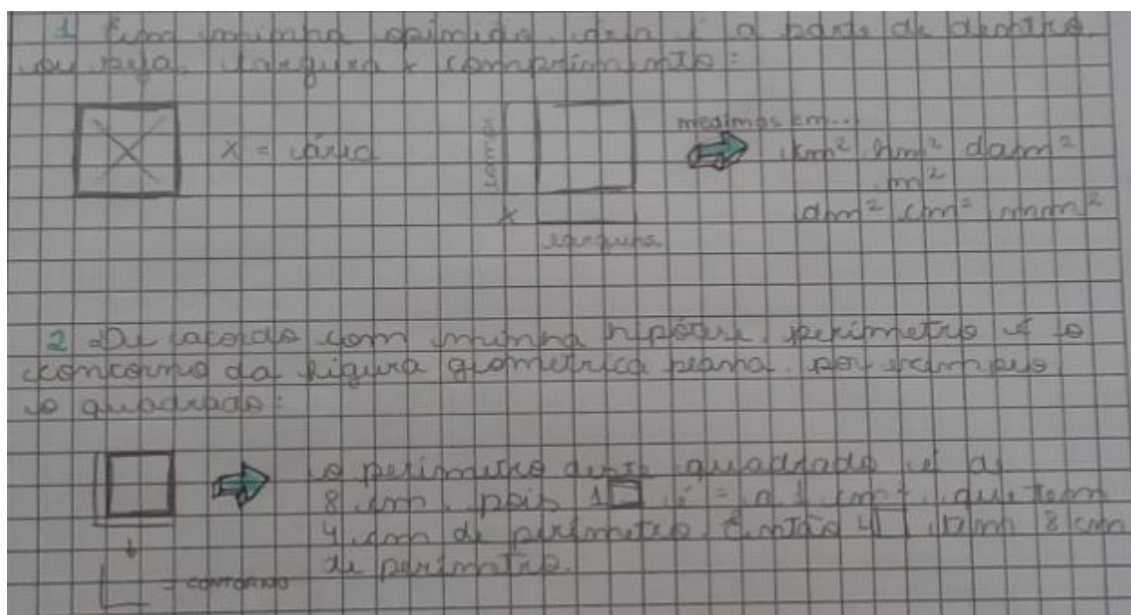 1 Em minha opinião, área é a parte de dentro
ou seja, largura x comprimento:
X = área
medimos em...
km² hm² dam²
m²
dm² cm² mm²
x
largura
2 De acordo com minha hipótese perímetro é o
contorno da figura geometrica plana. por exemplo
o quadrado:
o perimetro deste quadrado é
8 cm, pois 1 é = a 1 cm², que tem
4 cm de perimetro. Então 4 tem 8 cm
de perimetro.
= contorno